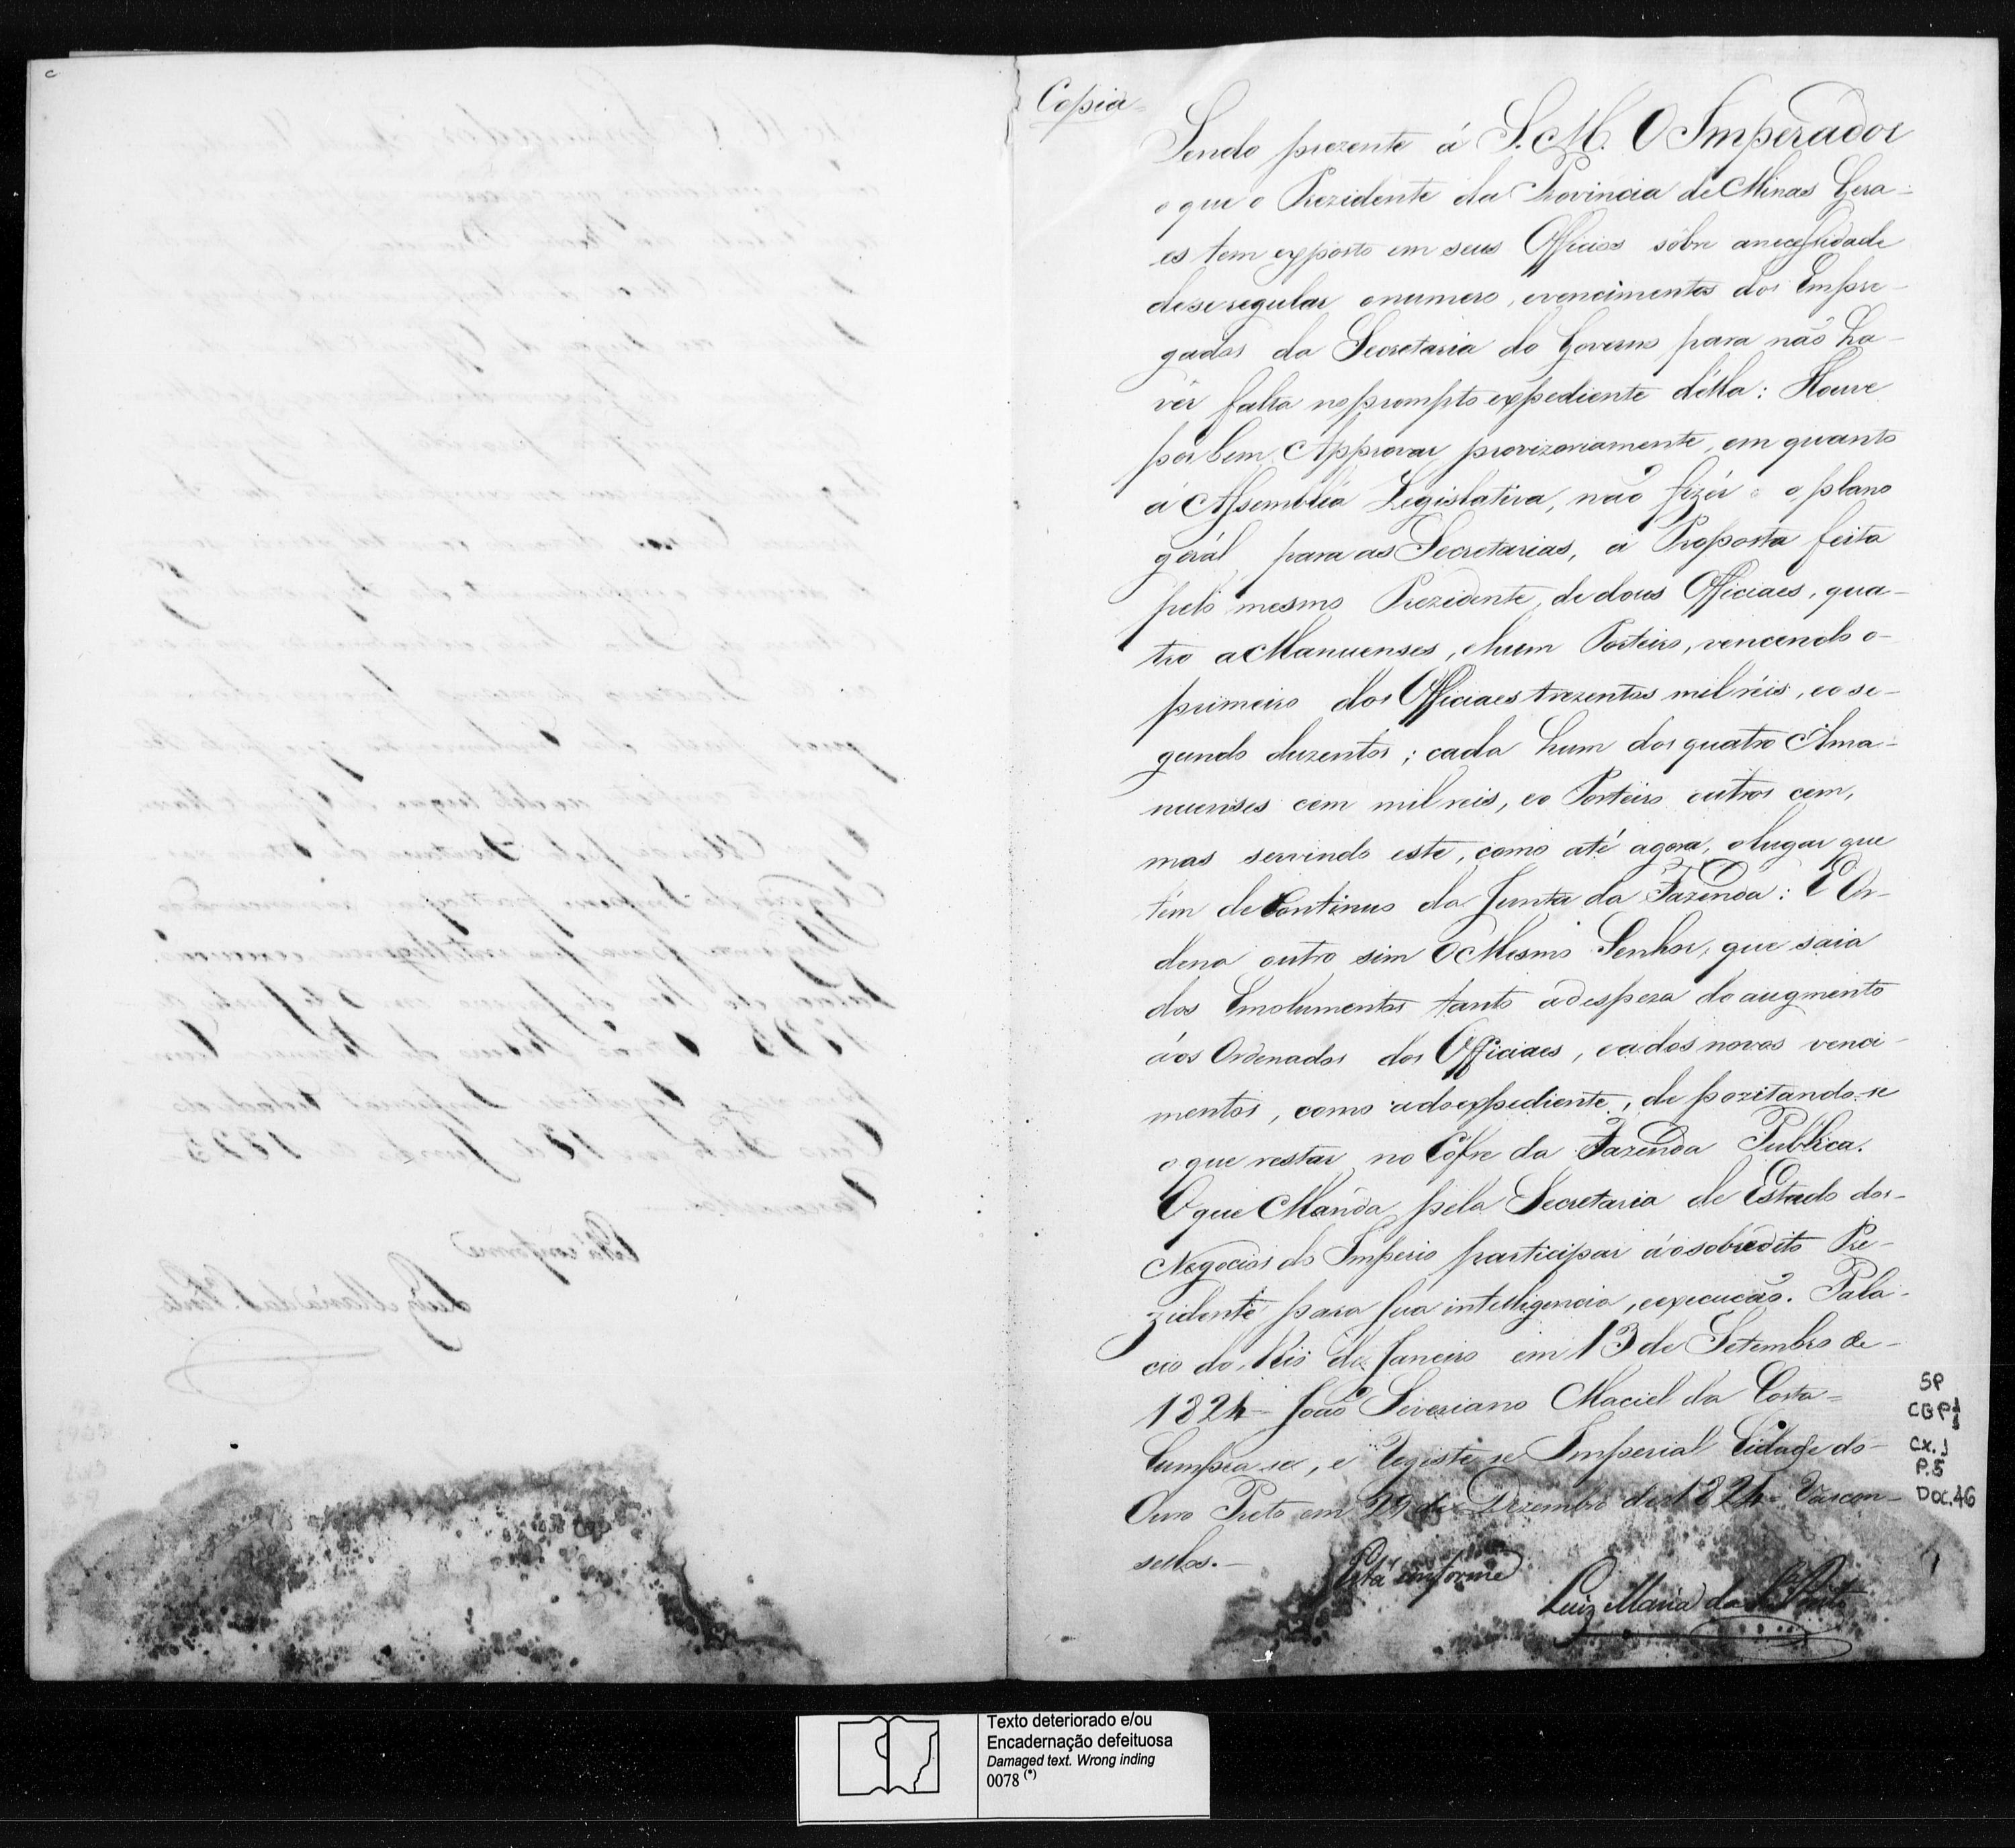 Copia
Sendo prezente á S. M. O Imperador
o que o Prezidente da Provincia de Minas Gera-
es tem exposto em seus Officios sôbre anecessidade
deseregular onumero, evencimentos dos Empre-
gados da Secretaria do Governo para não ha-
vêr falta noprompto expediente délla: Houve
por bem Approvar provizoriamente, em quanto
a Assembléa Legislativa, não fizér o plano
gerál para as Secretarias, a Proposta feita
pelo mesmo Prezidente, de dous Officiaes, qua-
tro aManuenses, ehum Porteiro, vencendo o-
primeiro dos Officiaes trezentos mil réis, eo se-
gundo duzentos; cada hum dos quatro Ama-
nuenses cem mil reis, eo Porteiro outros cem,
mas servindo este, como até agora, olugar que
tem de Continuo da Junta da Fazenda: E Or-
dena outro sim O Mesmo Senhor, que saia
dos Emolumentos tanto adespeza do augmento
áos Ordenados dos Officiaes, eados novos venci-
mentos, como adoexpediente, de pozitando-se
oque restar no Cofre da Fazenda Publica.
Oque Manda pela Secretaria de Estado dos-
Negocios do Imperio participar áosobredito Pre-
zidente para sua intelligencia, eexecucão. Pala-
cio do Rio de Janeiro em 13 de Setembro de-
1824 - João Severiano Maciel da Costa=
Cumpra-se, e Registe se Imperial Cidade do-
Ouro Preto em 29 de Dezembro de 1824 - Vascon-
sellos.-
Está conforme
Luiz Maria da Sª Pinto
SP
CBP 1/1
Cx. 1
P.5
DOC.46
1
Texto deteriorado e/ou
Encadernação defeituosa
Damaged text. Wrong inding
0078 (*)